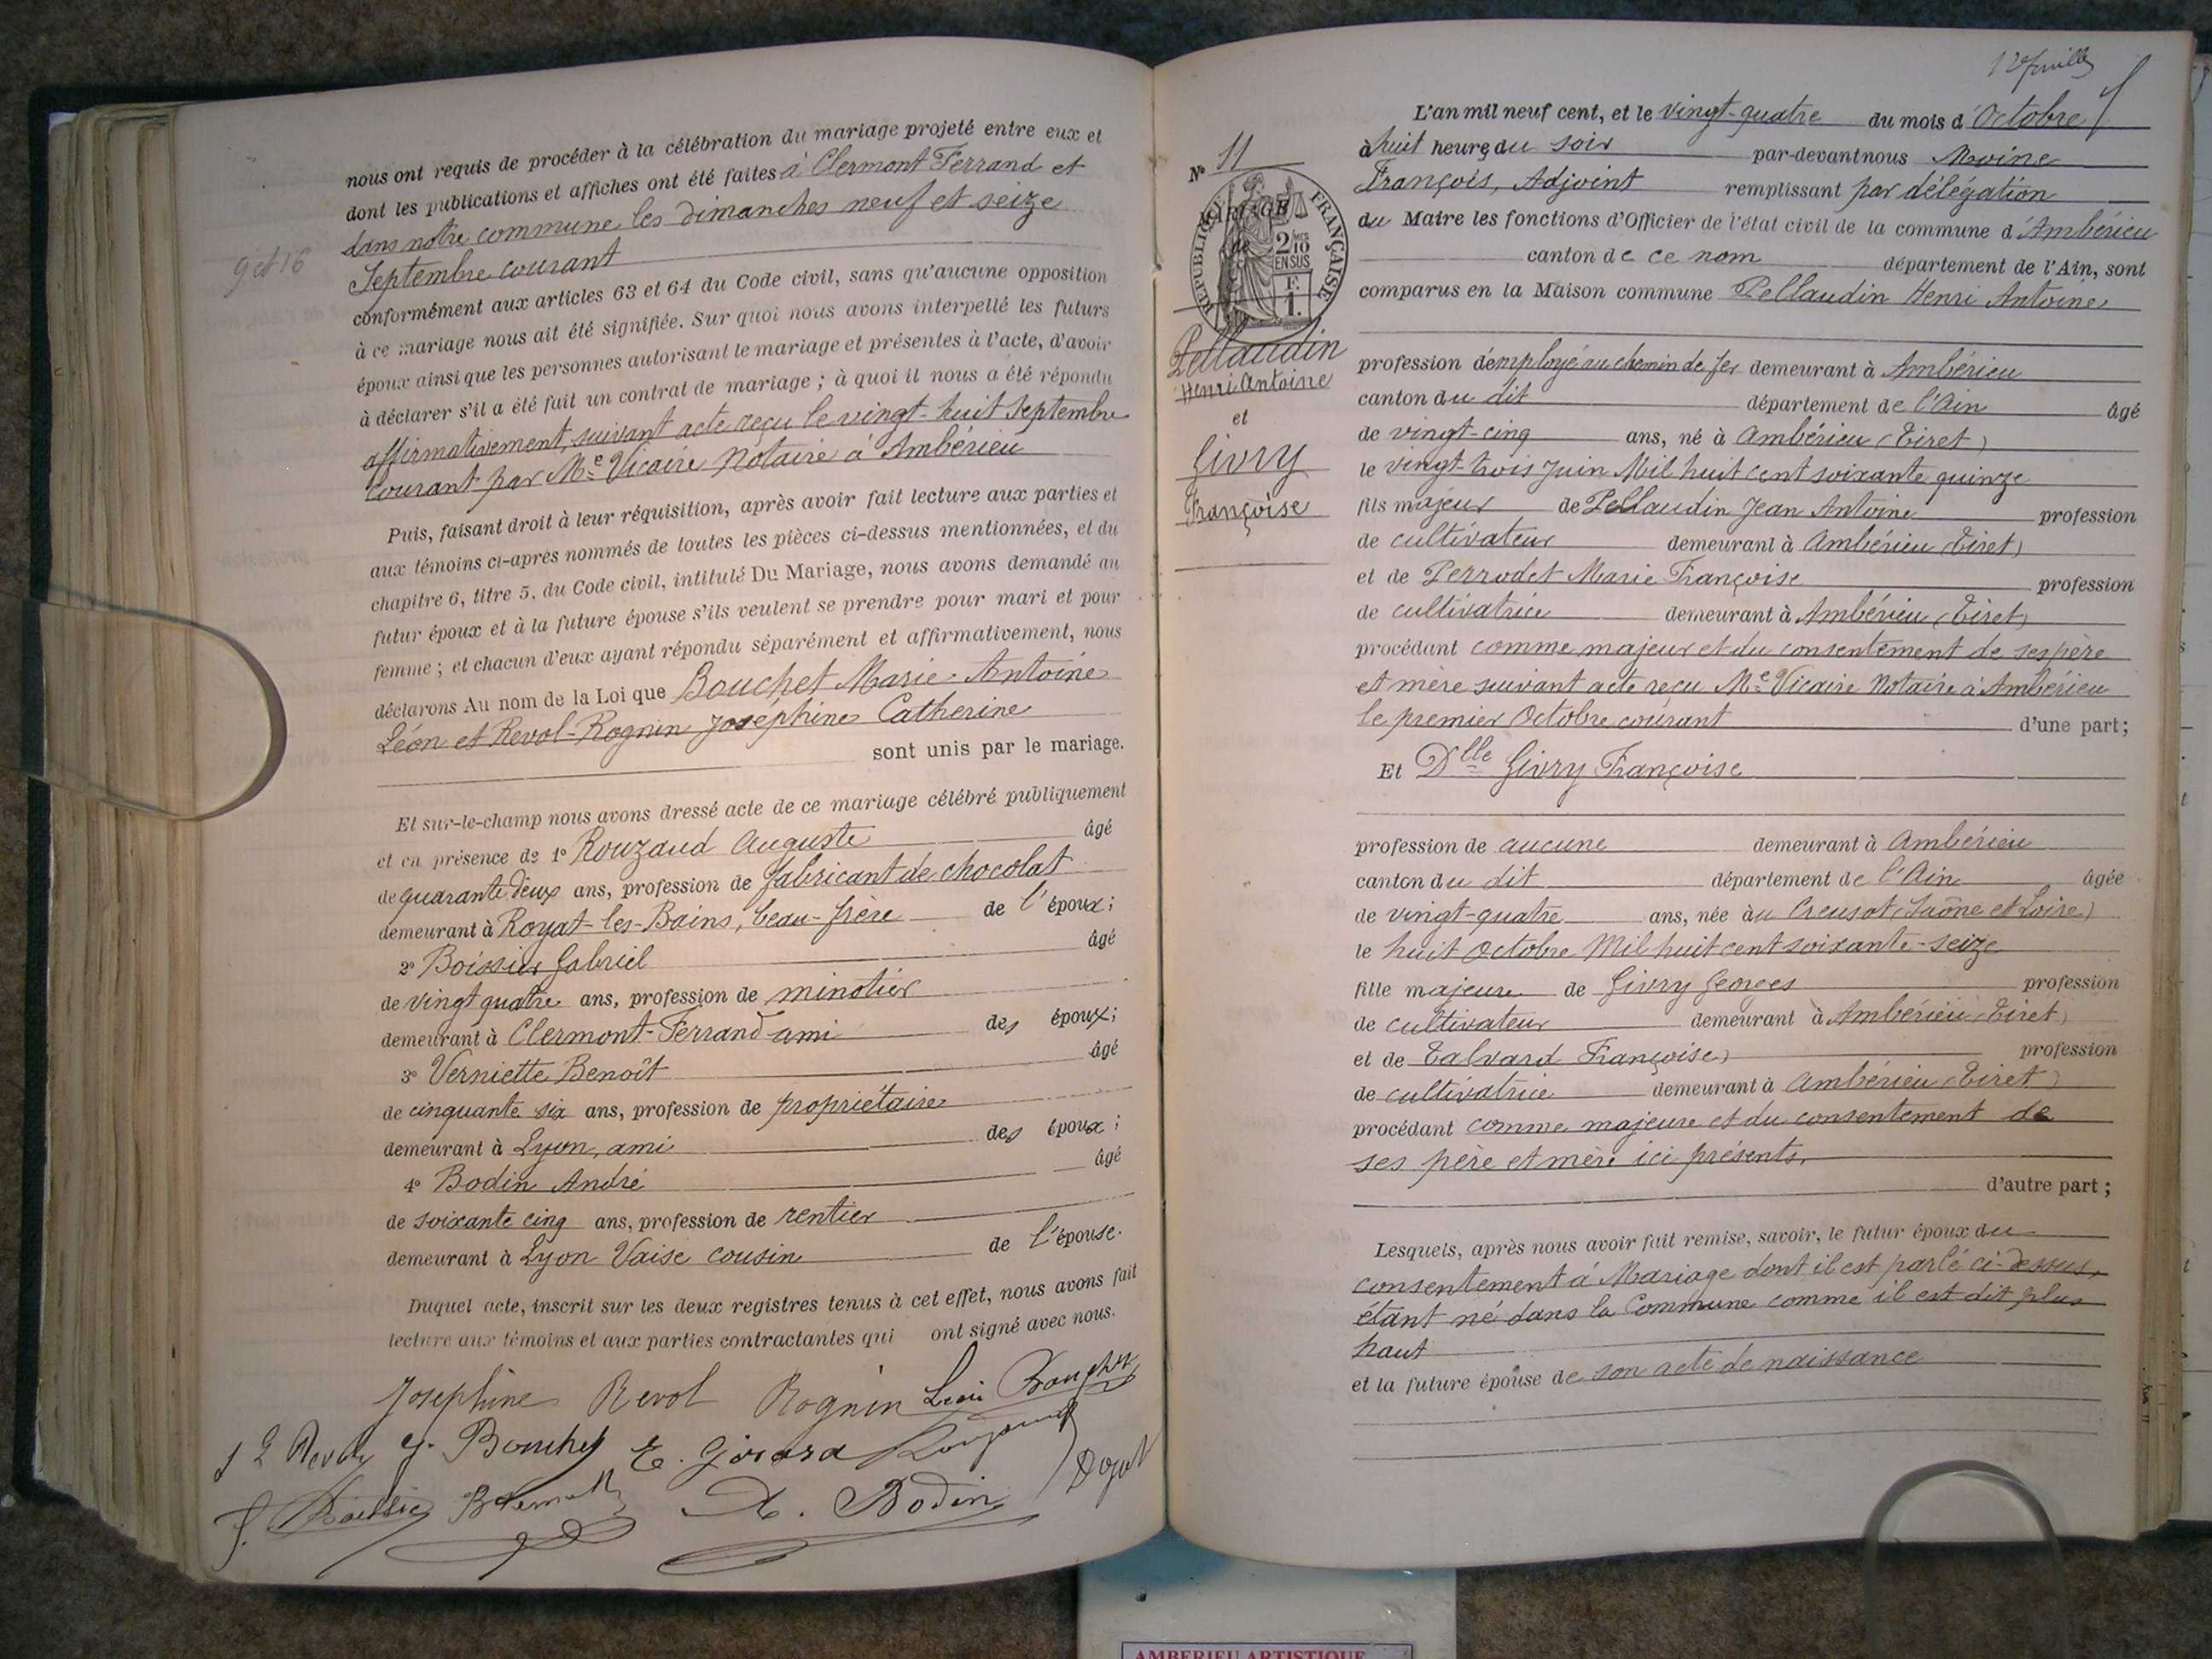 nous ont requis de procéder à la célébration du mariage projeté entre eux et
dont les publications et affiches ont été faites à Clermont Ferrand et
dans notre commune les dimanches neuf et seize
9 et 16
Septembre courant
conformément aux articles 63 et 64 du Code civil, sans qu'aucune opposition
à ce mariage nous ait été signifiée. Sur quoi nous avons interpellé les futurs
époux ainsi que les personnes autorisant le mariage et présentes à l'acte, d'avoir
à déclarer s'il a été fait un contrat de mariage ; à quoi il nous a été répondu
affirmativement, suivant acte reçu le vingt-huit Septembre
courant par Me Vicaire Notaire à Ambérieu
Puis, faisant droit à leur réquisition, après avoir fait lecture aux parties et
aux témoins ci-après nommés de toutes les pièces ci-dessus mentionnées, et du
chapitre 6, titre 5, du Code civil, intitulé Du Mariage, nous avons demandé au
futur époux et à la future épouse s'ils veulent se prendre pour mari et pour
femme ; et chacun d'eux ayant répondu séparément et affirmativement, nous
déclarons Au nom de la Loi que Bouchet Marie Antoine
Léon et Revol-Rognin Joséphine Catherine
sont unis par le mariage.
Et sur-le-champ nous avons dressé acte de ce mariage célébré publiquement
et en présence de 1° Rouzaud Auguste âgé
de quarante deux ans, profession de fabricant de chocolat
demeurant à Royat-les-Bains, beau-frère de l'époux ;
2° Boissier Gabriel âgé
de vingt quatre ans, profession de minotier
demeurant à Clermont-Ferrand ami des époux ;
3° Verniette Benoît âgé
de cinquante six ans, profession de propriétaire
demeurant à Lyon, ami des époux ;
4° Bodin André âgé
de soixante cinq ans, profession de rentier
demeurant à Lyon Vaise cousin de l'épouse.
Duquel acte, inscrit sur les deux registres tenus à cet effet, nous avons fait
lecture aux témoins et aux parties contractantes qui ont signé avec nous.
Joséphine Revol Rognin Léon Bouchet
J. Bouchet E. Girard Rouzaud
A. Bodin
L'an mil neuf cent, et le vingt-quatre du mois d'Octobre
à huit heures du soir par-devant nous Moine
François, Adjoint remplissant par délégation
du Maire les fonctions d'Officier de l'état civil de la commune d'Ambérieu
canton de ce nom département de l'Ain, sont
comparus en la Maison commune Pellaudin Henri Antoine
N° 11
MARIAGE
de
RÉPUBLIQUE FRANÇAISE
2/10 EN SUS
F. 1.
Pellaudin
Henri Antoine
et
Givry
Françoise
profession d'employé au chemin de fer demeurant à Ambérieu
canton du dit département de l'Ain âgé
de vingt-cinq ans, né à Ambérieu (Tiret)
le vingt-trois Juin Mil huit cent soixante quinze
fils majeur de Pellaudin Jean Antoine profession
de cultivateur demeurant à Ambérieu (Tiret)
et de Perrodet Marie Françoise profession
de cultivatrice demeurant à Ambérieu (Tiret)
procédant comme majeur et du consentement de ses père
et mère suivant acte reçu Me Vicaire Notaire à Ambérieu
le premier Octobre courant d'une part ;
Et Dlle Givry Françoise
profession de aucune demeurant à Ambérieu
canton du dit département de l'Ain âgée
de vingt-quatre ans, née au Creusot (Saône et Loire)
le huit Octobre Mil huit cent soixante-seize
fille majeure de Givry Georges profession
de cultivateur demeurant à Ambérieu (Tiret)
et de Talvard Françoise profession
de cultivatrice demeurant à Ambérieu (Tiret)
procédant comme majeure et du consentement de
ses père et mère ici présents.
d'autre part ;
Lesquels, après nous avoir fait remise, savoir, le futur époux du
consentement à Mariage dont il est parlé ci-dessus,
étant né dans la Commune comme il est dit plus
haut
et la future épouse de son acte de naissance
AMBERIEU ARTISTIQUE